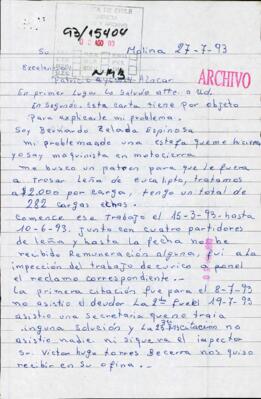 93/15404
02 AGO 93
Molina 27-7-93
Sr.
Excelen
Patricio Aylwin Azocar
ARCHIVO
En primer Lugar Lo Saludo atte. a Ud.
En Segundo. Esta carta tiene por objeto
Para explicarle mi problema.
Soy Bernardo Zelada Espinosa
mi problema es una estafa que me hicieron
yo soy maquinista en motocierra
me busco un patron para que le fuera
a Trosar Leña de eucalipto, tratamos
a $2.000 por carga, tengo un total de
282 cargas echas.
Comence ese Trabajo el 15-3-93. hasta
10-6-93. junto con cuatro partidores
de leña y hasta la fecha no he
recibido Remuneración alguna, fui a la
inspección del trabajo de curico a poner
el reclamo correspondiente.-
La primera citación fue para el 8-7-93
no asistio el deudor La 2da fue el 19-7-93
asistio una secretaria que no traia
inguna solución y La 3ra citacion no
asistio nadie. ni siquiera el inspector
Sr. Victor hugo torres Becerra nos quiso
recibir en Su ofina..